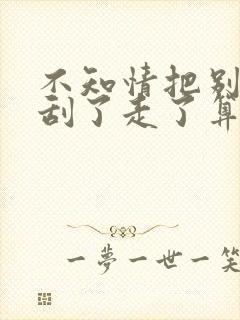 不知情把别
刮了走了算
一夢一世一笑